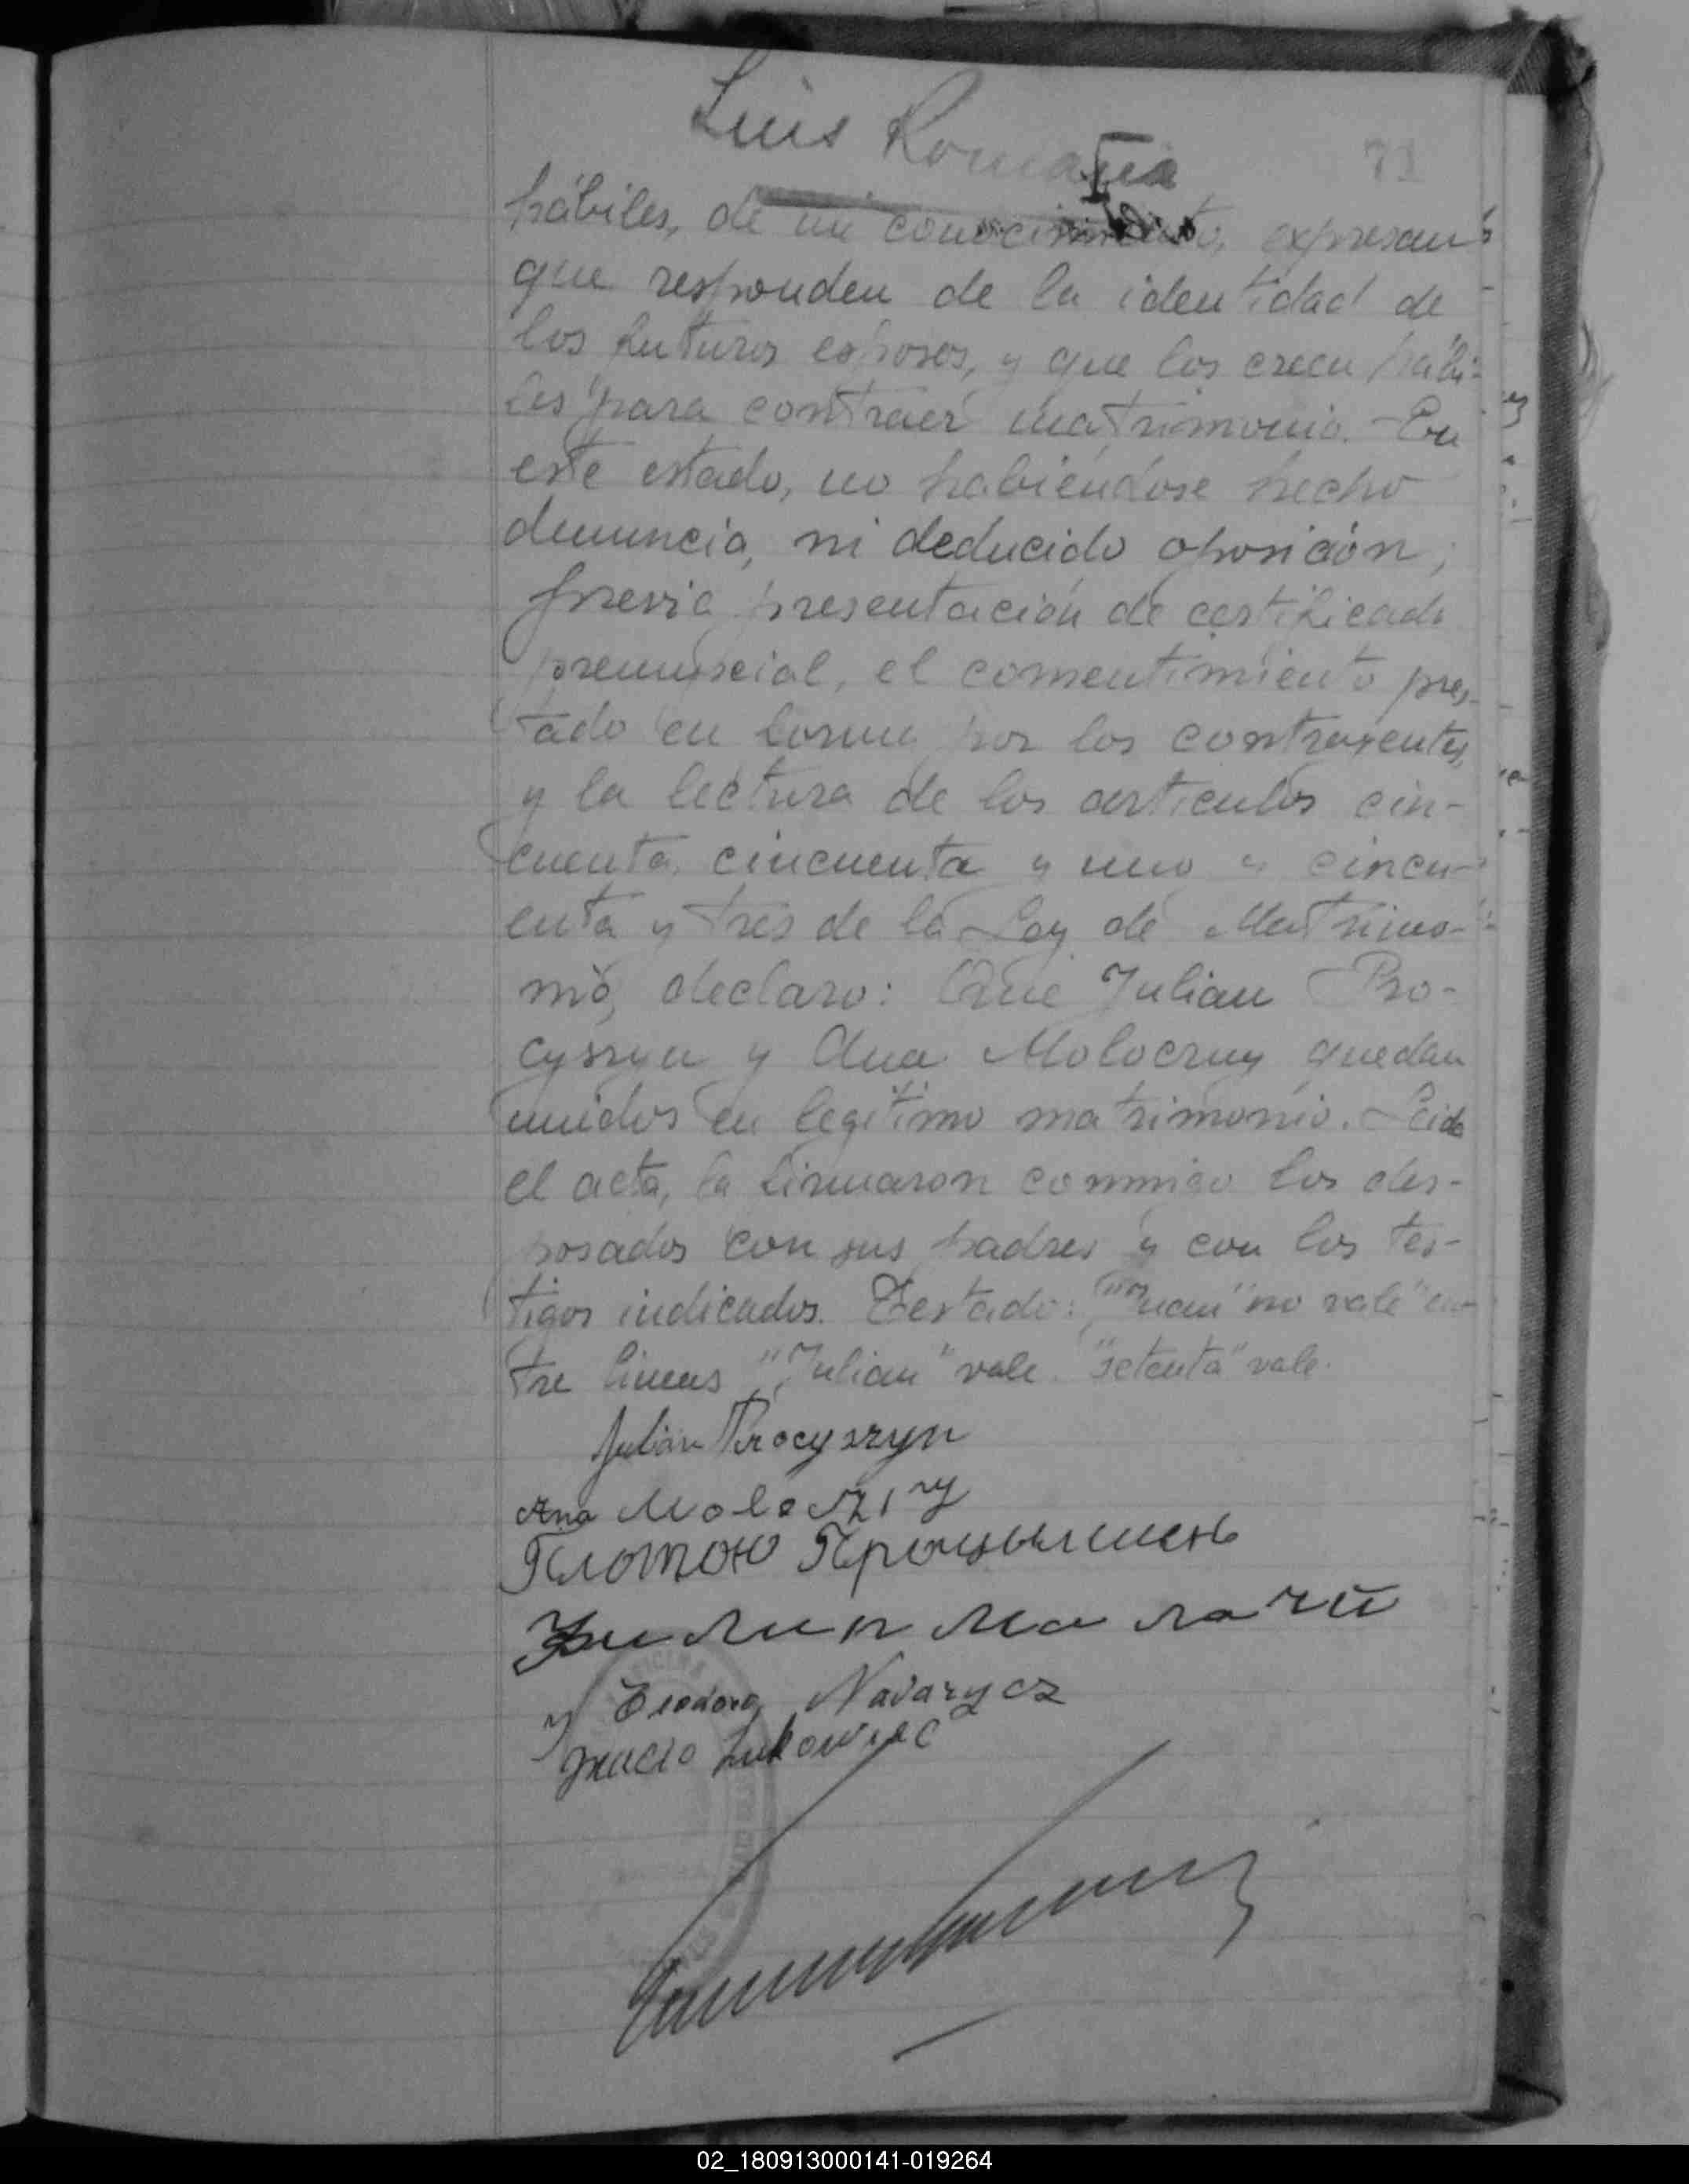 Luis Romana
71
hábiles, de mi conocimiento, expresan
que responden de la identidad de
los futuros esposos, y que los creen hábi-
les para contraer matrimonio. En
este estado, no habiéndose hecho
denuncia, ni deducido oposición,
previa presentación de certificado
prenupcial, el consentimiento pres-
tado en forma por los contrayentes,
y la lectura de los artículos cin-
cuenta, cincuenta y uno y cincu-
enta y tres de la Ley de Matrimo-
nio, declaro: Que Julian Pro-
cyszyn y Ana Moloczny quedan
unidos en legítimo matrimonio. Leida
el acta, la firmaron conmigo los des-
posados con sus padres y con los tes-
tigos indicados. Testado: "Juan" no vale "en-
tre lineas "Julian" vale. "setenta" vale.
Julian Procyszyn
Ana
Процышень
Филип Малачй
y Teodoro Navarycz
Ignacio Lukowiec
02_180913000141-019264